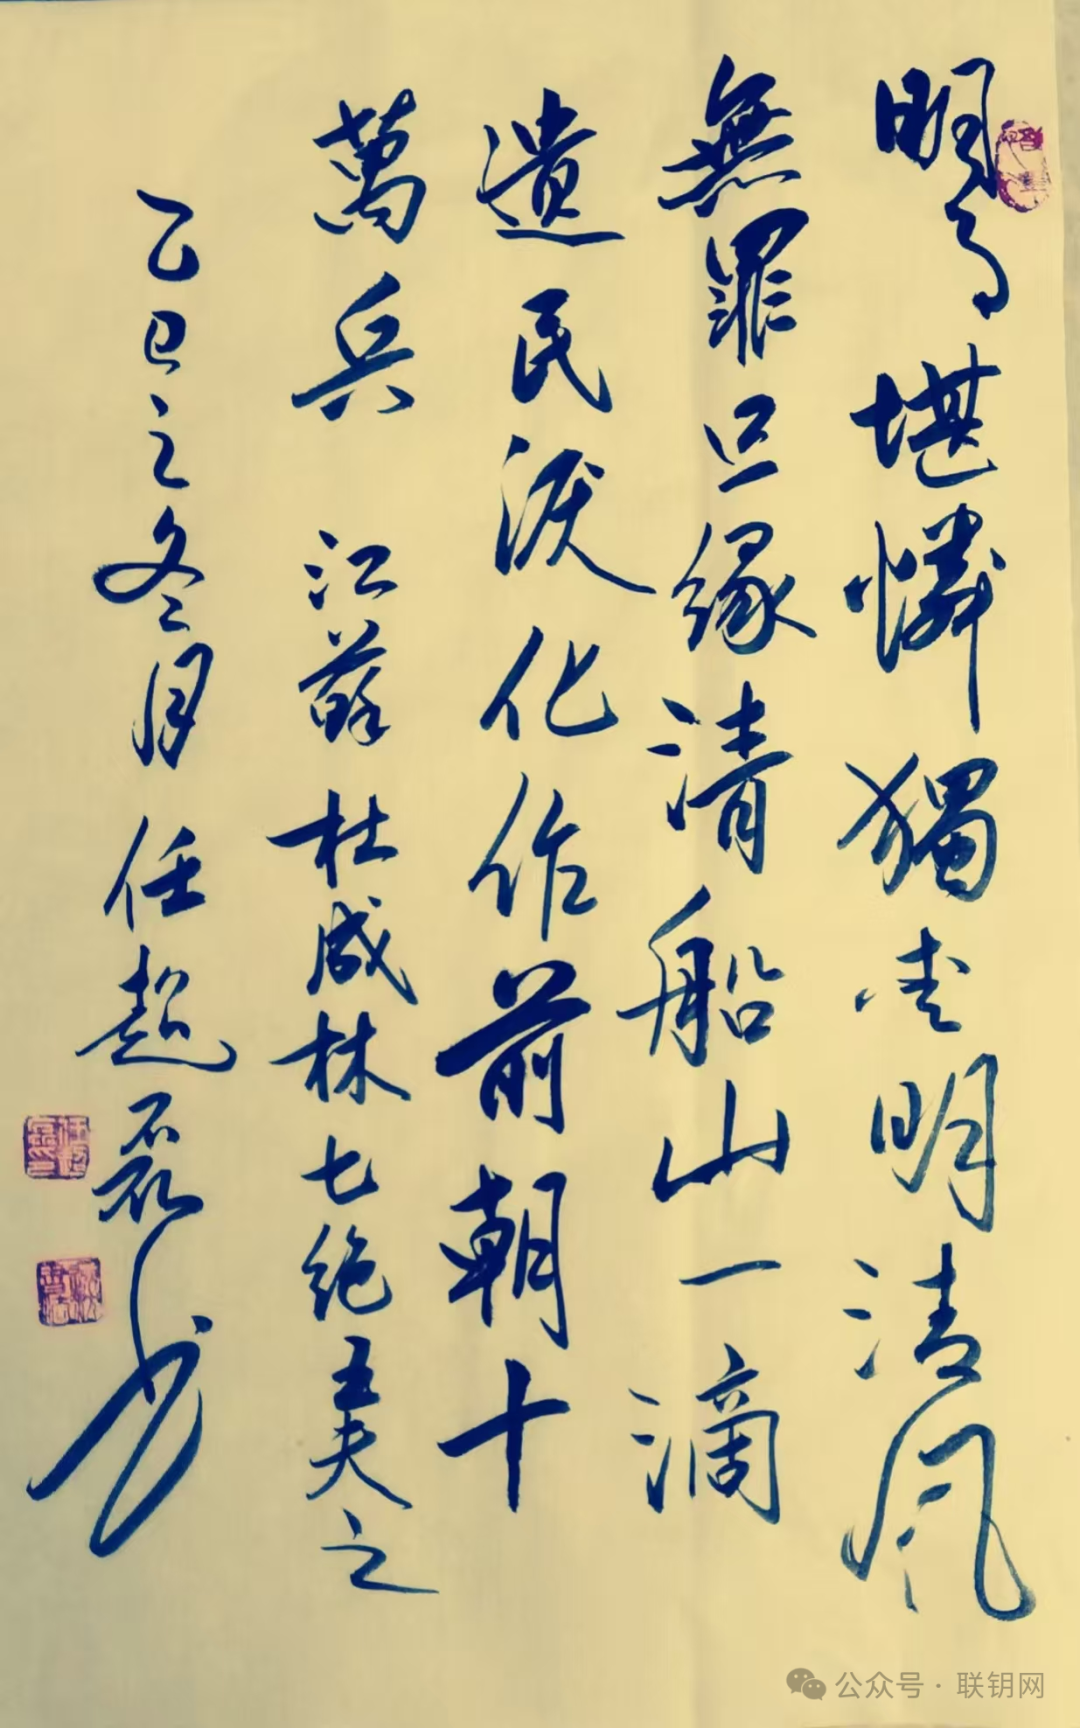 明月堪憐獨愛明清風
無罪只緣清船山一滴
遺民淚化作前朝十
萬兵 江蘇杜成林七绝王夫之
乙巳之冬月任超磊书
公众号 · 联钥网